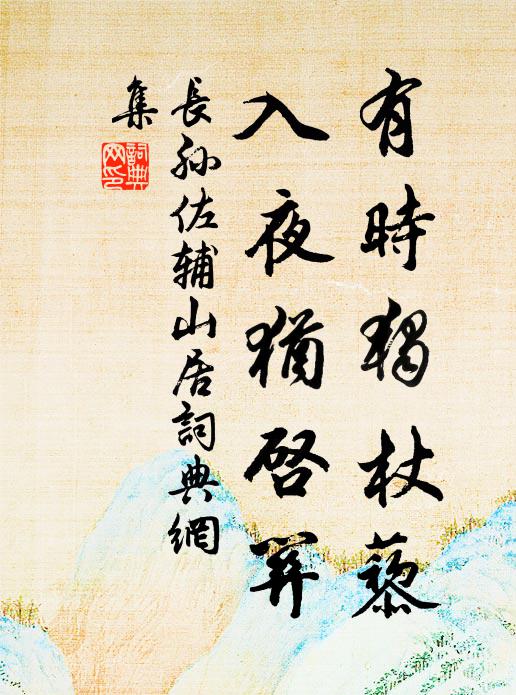 有時獨杖藜
入夜猶啓關
長孫佐輔山居詞典網
集
詞典
网印